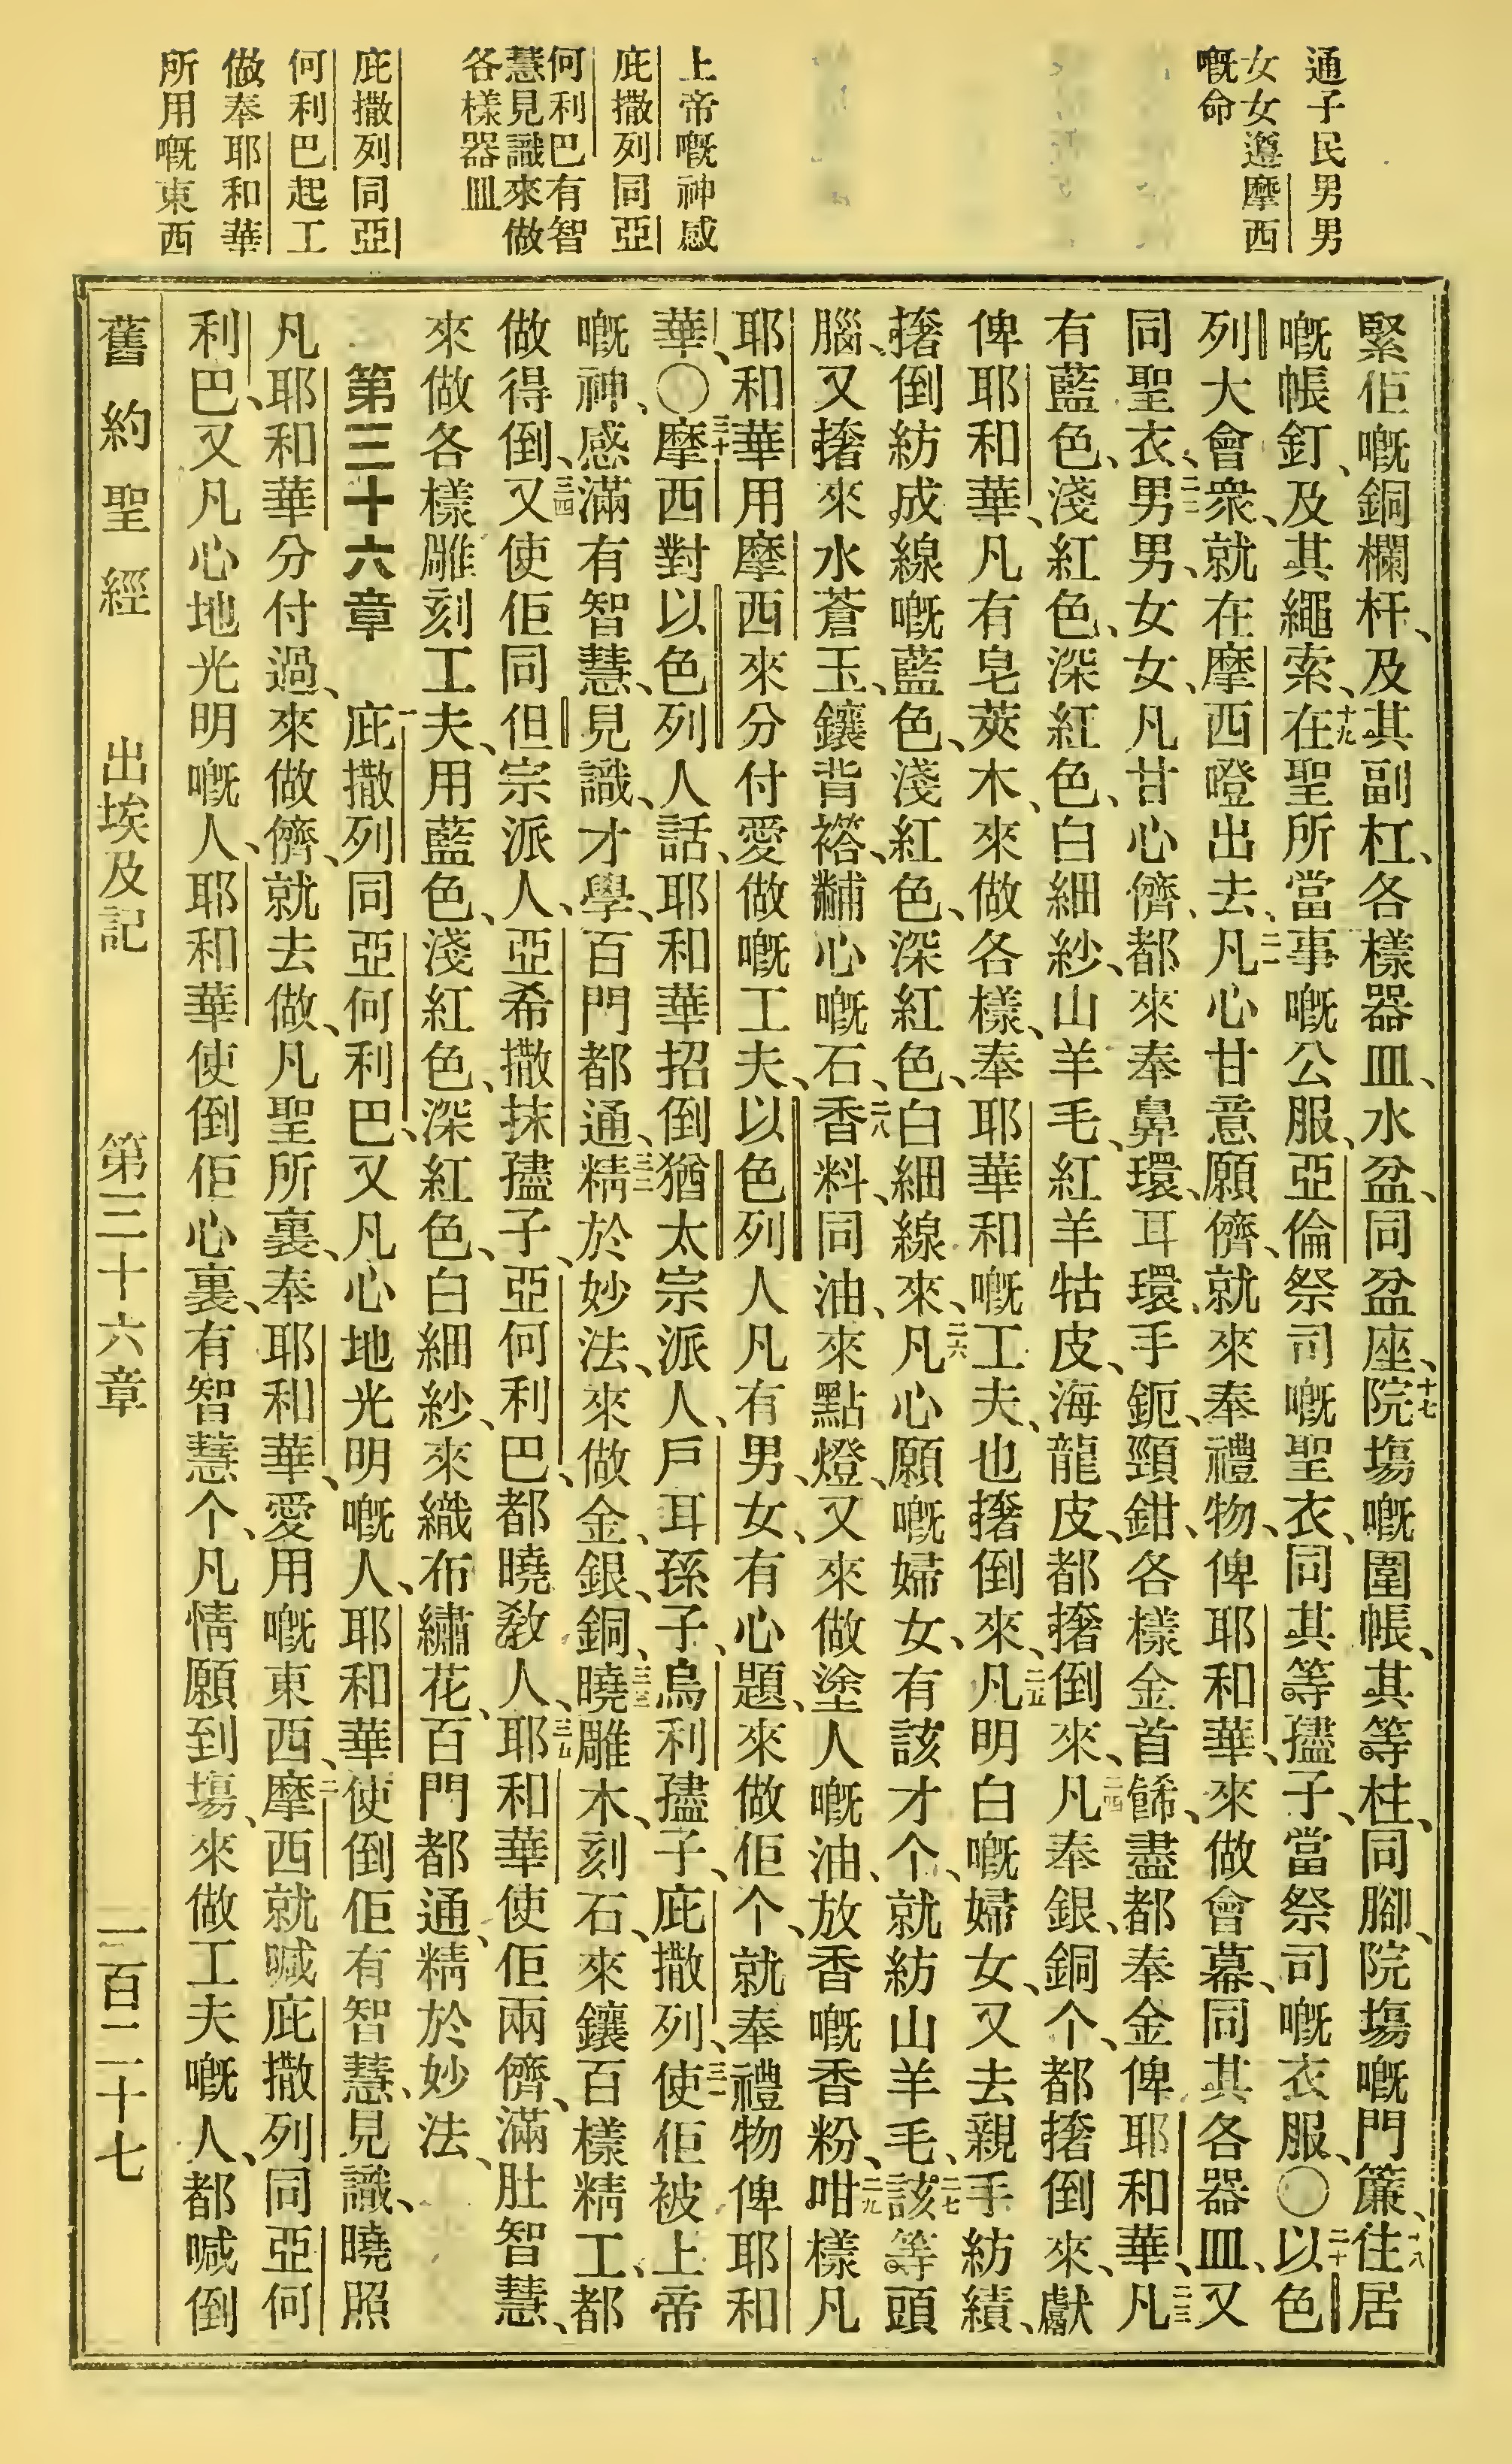 通子民男男
女女遵摩西
嘅命
上帝嘅神感
庇撒列同亞
何利巴有智
慧見識來做
各樣器皿
庇撒列同亞
何利巴起工
做奉耶和華
所用嘅東西
緊佢嘅銅欄杆、及其副杠、各樣器皿、水盆、同盆座、十七院塲嘅圍帳、其等柱、同腳、院塲嘅門簾、十八住居
嘅帳釘、及其繩索、十九在聖所當事嘅公服、亞倫祭司嘅聖衣、同其等孻子、當祭司嘅衣服、〇二十以色
列大會衆、就在摩西嘅出去、二一凡心甘意願儕、就來奉禮物、俾耶和華、來做會幕、同其各器皿、又
同聖衣、二二男男、女女、凡甘心儕、都來奉鼻環、耳環、手鈪、頸鉗、各樣金首餙、盡都奉金俾耶和華、二三凡
有藍色、淺紅色、深紅色、白細紗、山羊毛、紅羊牯皮、海龍皮、都撦倒來、二四凡奉銀、銅个、都撦倒來、獻
俾耶和華、凡有皂莢木、來做各樣、奉耶華和嘅工夫、也撦倒來、二五凡明白嘅婦女、又去親手紡績、
撦倒紡成線嘅藍色、淺紅色、深紅色、白細線來、二六凡心願嘅婦女、有該才个、就紡山羊毛、二七該等頭
腦、又撦來水蒼玉、鑲背褡、黼心嘅石、二八香料、同油、來點燈、又來做塗人嘅油、放香嘅香粉、二九咁樣凡
耶和華用摩西來分付愛做嘅工夫、以色列人凡有男、女、有心題、來做佢个、就奉禮物俾耶和
華、〇三十摩西對以色列人話、耶和華招倒猶太宗派人、戶耳孫子、烏利孻子、庇撒列、三一使佢被上帝
嘅神、感滿有智慧、見識、才學、百門都通、三二精於妙法、來做金、銀、銅、三三曉雕木、刻石、來鑲百樣精工、都
做得倒、三四又使佢同但宗派人、亞希撒抹孻子、亞何利巴、都曉教人、三五耶和華使佢兩儕、滿肚智慧、
來做各樣雕刻工夫、用藍色、淺紅色、深紅色、白細紗、來織布繡花、百門都通、精於妙法、
第三十六章　一庇撒列同亞何利巴、又凡心地光明嘅人、耶和華使倒佢有智慧、見識、曉照
凡耶和華分付過、來做儕、就去做、凡聖所裏、奉耶和華、愛用嘅東西、二摩西就喊庇撒列同亞何
利巴、又凡心地光明嘅人、耶和華使倒佢心裏、有智慧个、凡情願到塲、來做工夫嘅人、都喊倒
舊約聖經　出埃及記　第三十六章　一百二十七